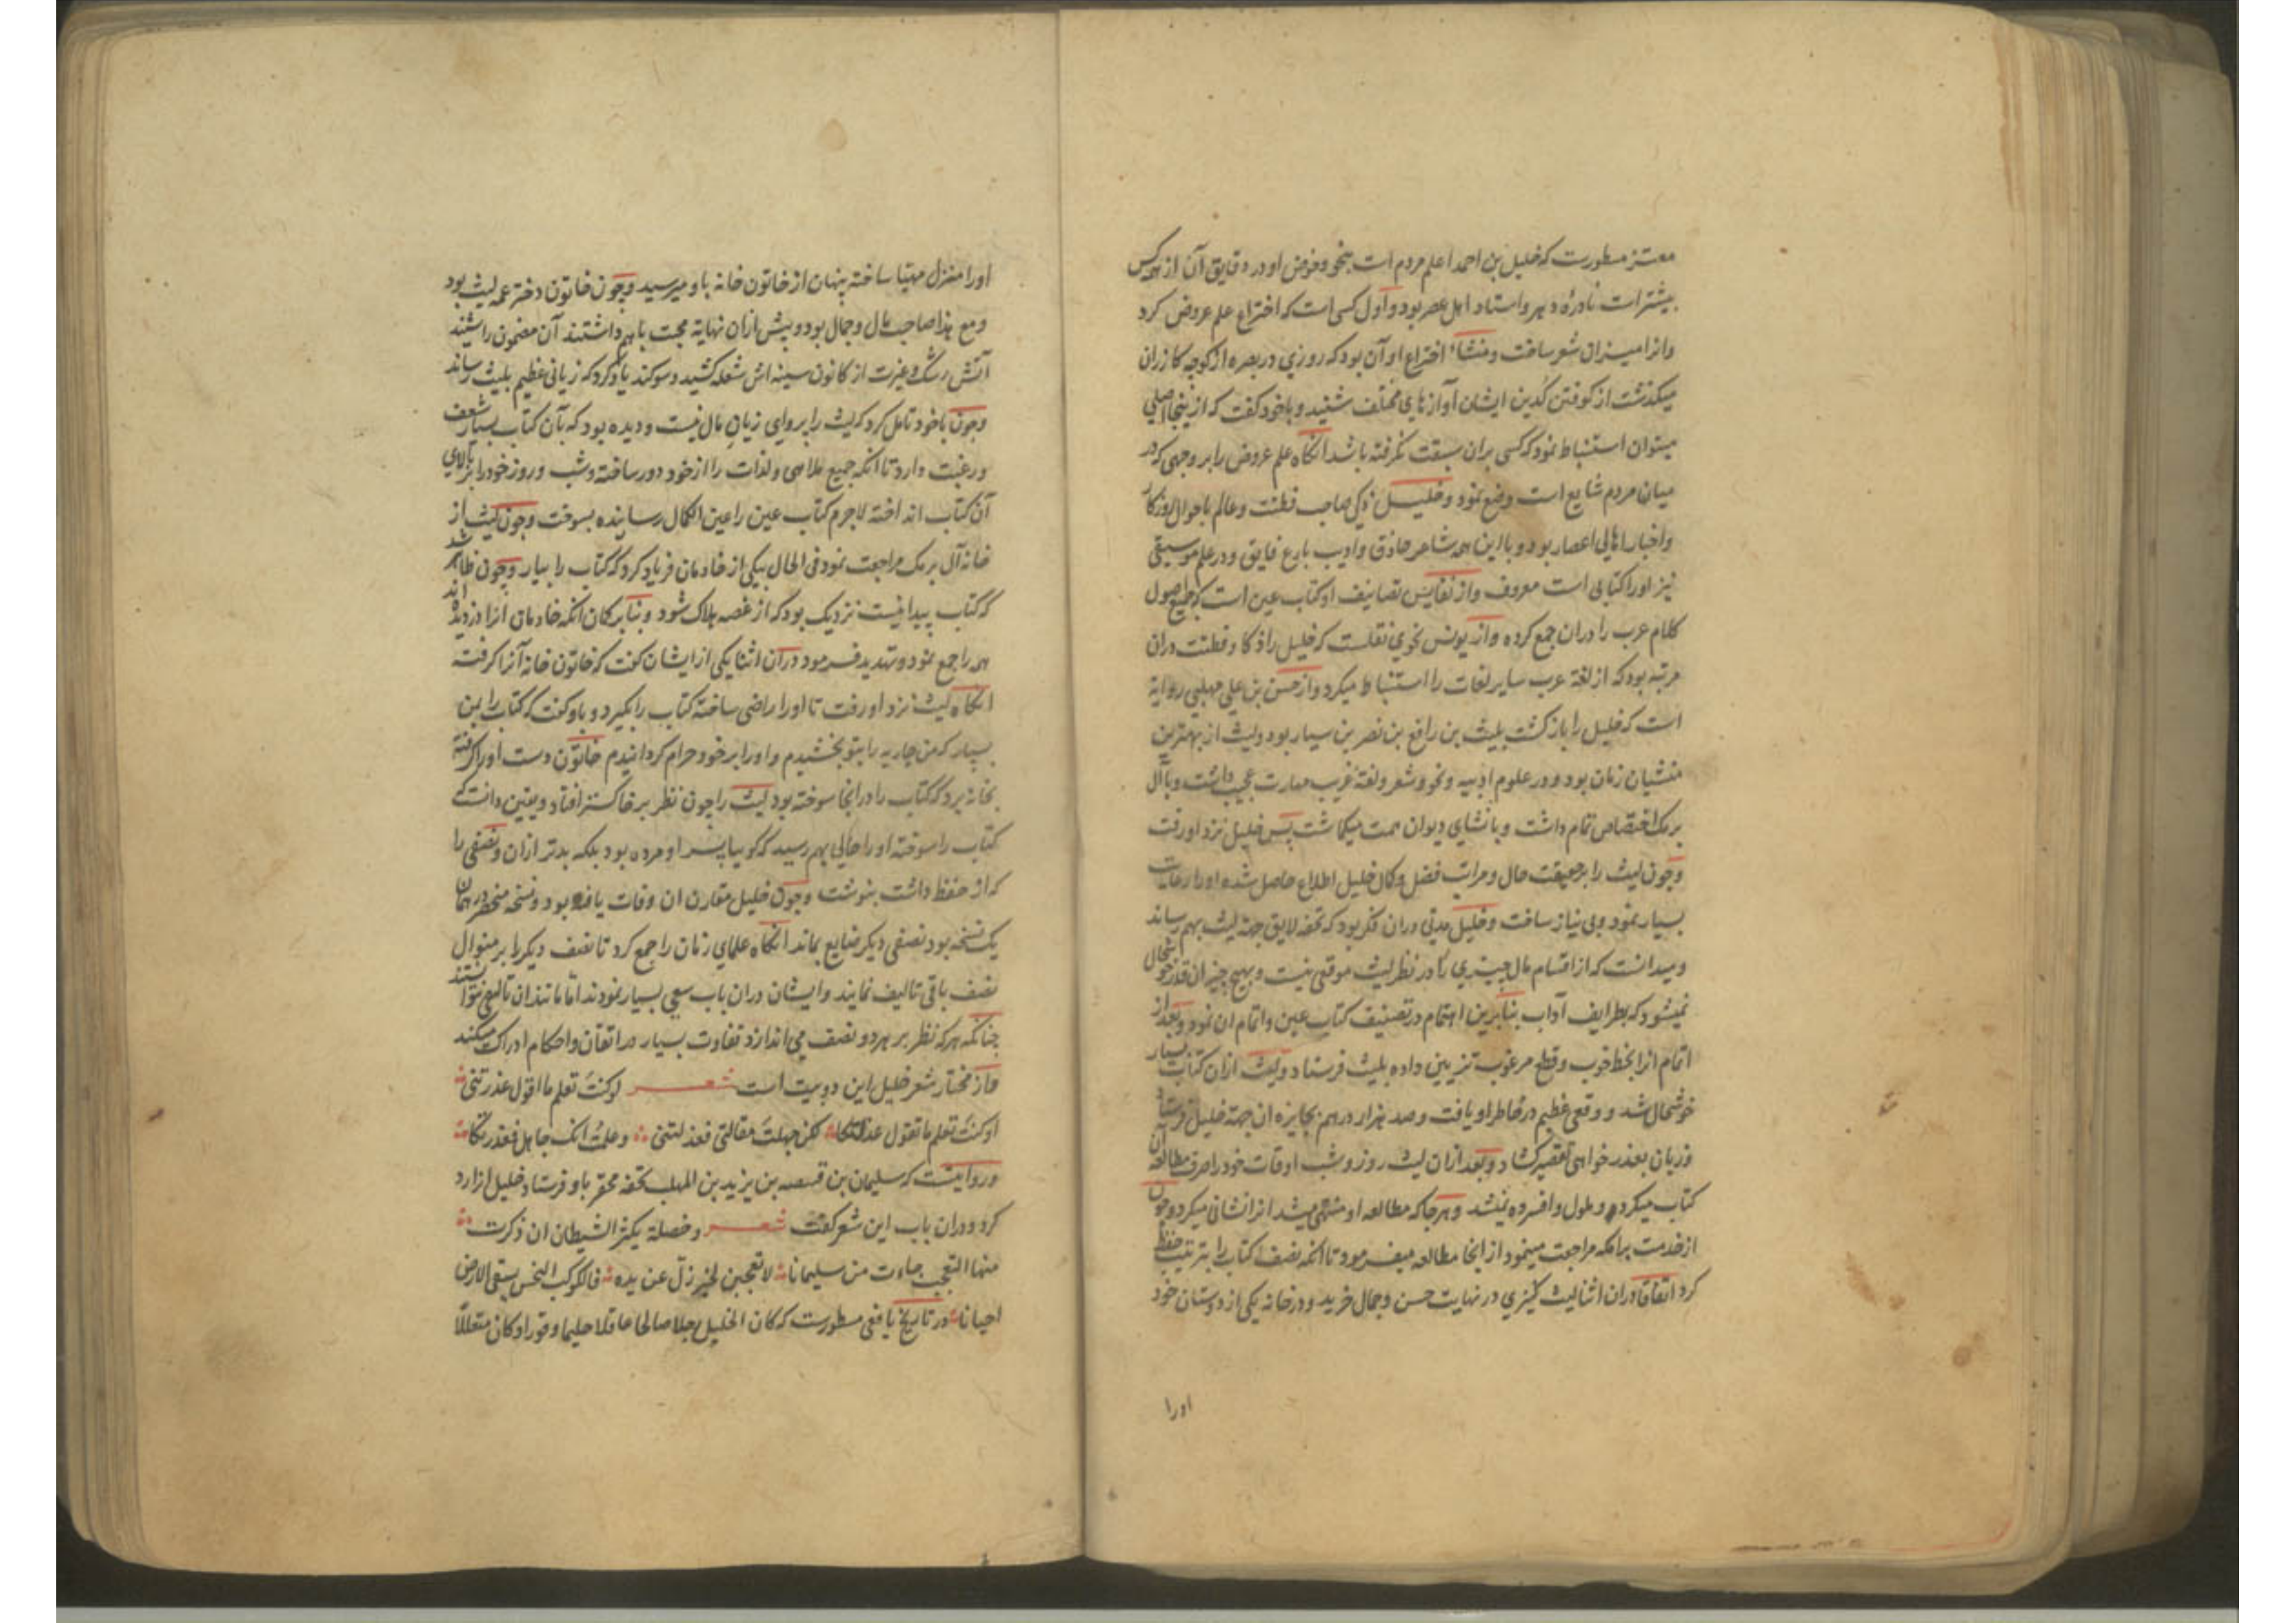 معتز مسطورست که خلیل بن احمد اعلم مردم است بنحو و خوض او در دقایق آن از همه کس
بیشترات نادرۀ دهر و استاد اهل عصر بود و اول کسی است که اختراع علم عروض کرد
وانرا میزان شعر ساخت و منشاء اختراع او آن بود که روزی در بصره از کوچه کازران
میکذشت از کوفتن کدین ایشان آوازهای مختلف شنید و باخود کفت که ازینجا اصلی
میتوان استنباط نمود که کسی بران سبقت نکرفته باشد انکاه علم عروض را بر وجهی که در
میان مردم شایع است وضع نمود و خلیل ذکی صاحب فطنت و عالم باحوال روزکار
واخبار اهالی اعصار بود و با این همه شاعر حاذق و ادیب بارع فایق و در علم موسیقی
نیز اورا کتابی است معروف و از نفایس تصانیف او کتاب عین است که جمیع اصول
کلام عرب را دران جمع کرده و از یونس نحوی نقلست که خلیل را ذکا و فطنت دران
مرتبه بود که از لغة عرب سایر لغات را استنباط میکرد و از حسن بن علی مهلبی روایة
است که خلیل را بازکشت بلیث بن رافع بن نصر بن سیار بود و لیث از بهترین
منشیان زمان بود و در علوم ادبیه و نحو و شعر و لغة غریب مهارت عجیب داشت و با آل
برمک اختصاص تمام داشت و بانشای دیوان همت میکاشت پس خلیل نزد اورفت
وچون لیث را برحقیقت حال و مراتب فضل و کمال خلیل اطلاع حاصل شده اورا رعایت
بسیار نمود و بی نیاز ساخت و خلیل مدتی دران فکر بود که تحفه لایق جهة لیث بهم رساند
و میدانست که از اقسام مال چیزی را در نظر لیث موقعی نیست و بهیچ چیز ان قدر خوشحال
نمیشود که بطرایف آداب بنابرین اهتمام در تصنیف کتاب عین و اتمام ان نمود و بعد از
اتمام انرا بخط خوب و قطع مرغوب تزیین داده بلیث فرستاد و لیث ازان کتاب بسیار
خوشحال شد و وقعی عظیم در خاطر او یافت و صد هزار درهم بجایزه ان جهة خلیل فرستاد
وزبان بعذر خواهی تقصیر کشاد و بعد ازان لیث روز و شب اوقات خود را صرف مطالعه آن
کتاب میکرد و ملول و افسرده نمیشد و هرجا که مطالعه او منتهی میشد انرا نشانی میکرد و چون
از خدمت برامکه مراجعت مینمود از انجا مطالعه میفرمود تا انکه نصف کتاب را بترتیب حفظ
کرد اتفاقا دران اثنا لیث کنیزی در نهایت حسن و جمال خرید و در خانه یکی از دوستان خود
اورا
اورا منزل مهیا ساخته پنهان از خاتون خانه باو میرسید و چون خاتون دختر عمه لیث بود
ومع هذا صاحب مال و جمال بود و پیش ازان نهایة محبت با هم داشتند آن مضمون را شنید
آتش رشک و غیرت از کانون سینه اش شعله کشید و سوکند یاد کرد که زیانی عظیم بلیث رساند
وچون باخود تامل کرد که لیث را پروای زیان مال نیست و دیده بود که بآن کتاب بسیار شعف
ورغبت دارد تا انکه جمیع ملاهی و لذات را از خود دور ساخته و شب و روز خودرا بر بالای
آن کتاب انداخته لاجرم کتاب عین را عین الکمال رسانیده بسوخت و چون لیث از
خانه آل برمک مراجعت نمود فی الحال بیکی از خادمان فریاد کرد که کتاب را بیار و چون ظاهر شد
که کتاب پیدا نیست نزدیک بود که از غصه هلاک شود و بنابر کمان انکه خادمان انرا دزدیده اند
همه را جمع نمود و تهدید فرمود دران اثنا یکی از ایشان کفت که خاتون خانه آنرا کرفته
انکاه لیث نزد او رفت تا اورا راضی ساخته کتاب را بکیرد و باو کفت که کتاب را بمن
بسپار که من جاریه را بتو بخشیدم و اورا برخود حرام کردانیدم خاتون دست اورا کرفته
بخانه برد که کتاب را در انجا سوخته بود لیث را چون نظر بر خاکستر افتاد و یقین دانست که
کتاب را سوخته اورا حالی بهم رسید که کوییا پسر او مرده بود بلکه بدتر ازان و نصفی را
که از حفظ داشت بنوشت و چون خلیل مقارن ان وفات یافته بود و نسخه منحصر در همان
یک نسخه بود نصفی دیکر ضایع بماند انکاه علمای زمان را جمع کرد تا نصف دیکر را بر منوال
نصف باقی تالیف نمایند و ایشان دران باب سعی بسیار نمودند اما مانند ان تالیفی نتوانستند
چنانکه هرکه نظر بر هردو نصف می اندازد تفاوت بسیار در اتقان و احکام ادراک میکند
واز مختار شعر خلیل این دو بیت است شعر لوکنتَ تعلم ما اقول عذرتنی
اوکنتَ تعلم ما تقول عذلتکا لکن جهلتَ مقالتی فعذلتنی وعلمتُ انک جاهل فعذرتکا
وروایتست که سلیمان بن قبیصه بن یزید بن المهلب تحفه محقر باو فرستاد خلیل انرا رد
کرد و دران باب این شعر کفت شعر وخصلة یکثر الشیطان ان ذکرت
منها التعجب جاءت من سلیمانا لا تعجبن لخیر زلّ عن یده فالکوکب النحس یسقی الارض
احیانا در تاریخ یافعی مسطورست که کان الخلیل رجلا صالحا عاقلا حلیما وقورا وکان متقللّا